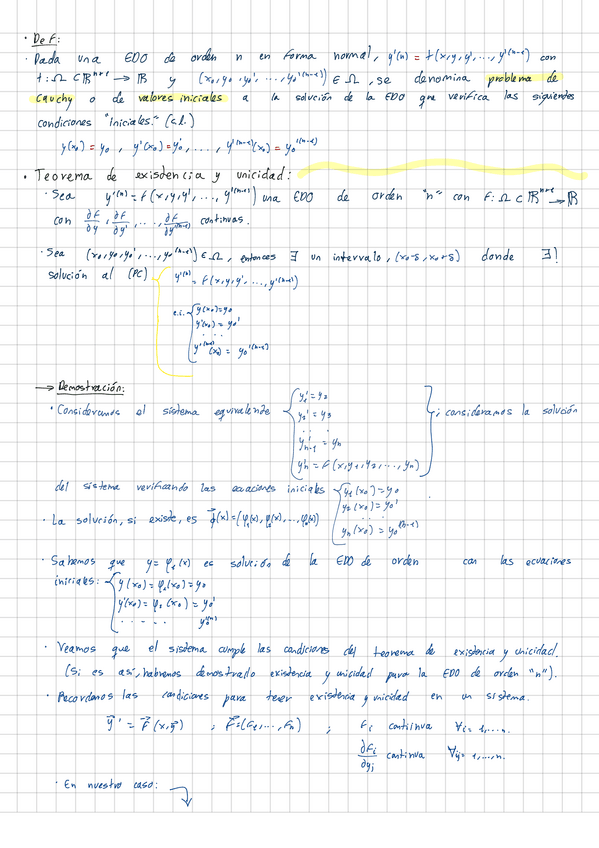 · Def:
· Dada una EDO de orden n en forma normal, y'⁽ⁿ⁾ = f(x,y,y',...,y'⁽ⁿ⁻¹⁾) con
f: Ω ⊂ ℝⁿ⁺¹ → ℝ y (x₀,y₀,y₀',...,y₀'⁽ⁿ⁻¹⁾) ∈ Ω, se denomina problema de
cauchy o de valores iniciales a la solución de la EDO que verifica las siguientes
condiciones "iniciales." (c.i.)
y(x₀) = y₀ , y'(x₀) = y₀', ..., y'⁽ⁿ⁻¹⁾(x₀) = y₀'⁽ⁿ⁻¹⁾
· Teorema de existencia y unicidad:
· Sea y'⁽ⁿ⁾ = f(x,y,y',...,y'⁽ⁿ⁻¹⁾) una EDO de orden "n" con F: Ω ⊂ ℝⁿ⁺¹ → ℝ
con ∂F/∂y, ∂F/∂y', ..., ∂F/∂y'⁽ⁿ⁻¹⁾ continuas.
· Sea (x₀,y₀,y₀',...,y₀'⁽ⁿ⁻¹⁾) ∈ Ω, entonces ∃ un intervalo, (x₀-δ, x₀+δ) donde ∃!
solución al (PC) { y'⁽ⁿ⁾ = F(x,y,y',...,y'⁽ⁿ⁻¹⁾)
c.i. { y(x₀) = y₀
y'(x₀) = y₀'
. . .
y'⁽ⁿ⁻¹⁾(x₀) = y₀'⁽ⁿ⁻¹⁾
→ Demostración:
· Consideramos el sistema equivalende { y₁' = y₂
y₂' = y₃
. . .
y'ₙ₋₁ = yₙ
y'ₙ = F(x,y₁,y₂,...,yₙ) } ; consideramos la solución
del sistema verificando las ecuaciones iniciales { y₁(x₀) = y₀
y₂(x₀) = y₀'
. . .
yₙ(x₀) = y₀⁽ⁿ⁻¹⁾
· La solución, si existe, es φ⃗(x) = (φ₁(x), φ₂(x), ..., φₙ(x))
· Sabemos que y = φ₁(x) es solución de la EDO de orden con las ecuaciones
iniciales: { y(x₀) = φ₁(x₀) = y₀
y'(x₀) = φ₂(x₀) = y₀'
. . . . . y₀⁽ⁿ⁾
· Veamos que el sistema cumple las condiciones del teorema de existencia y unicidad.
(Si es así, habremos demostrado existencia y unicidad para la EDO de orden "n").
· Recordamos las condiciones para tener existencia y unicidad en un sistema.
y⃗' = F⃗(x,y⃗) ; F⃗ = (F₁,...,Fₙ) ; Fᵢ continua ∀i = 1,...,n.
∂Fᵢ/∂yⱼ continua ∀ij = 1,...,n.
· En nuestro caso: